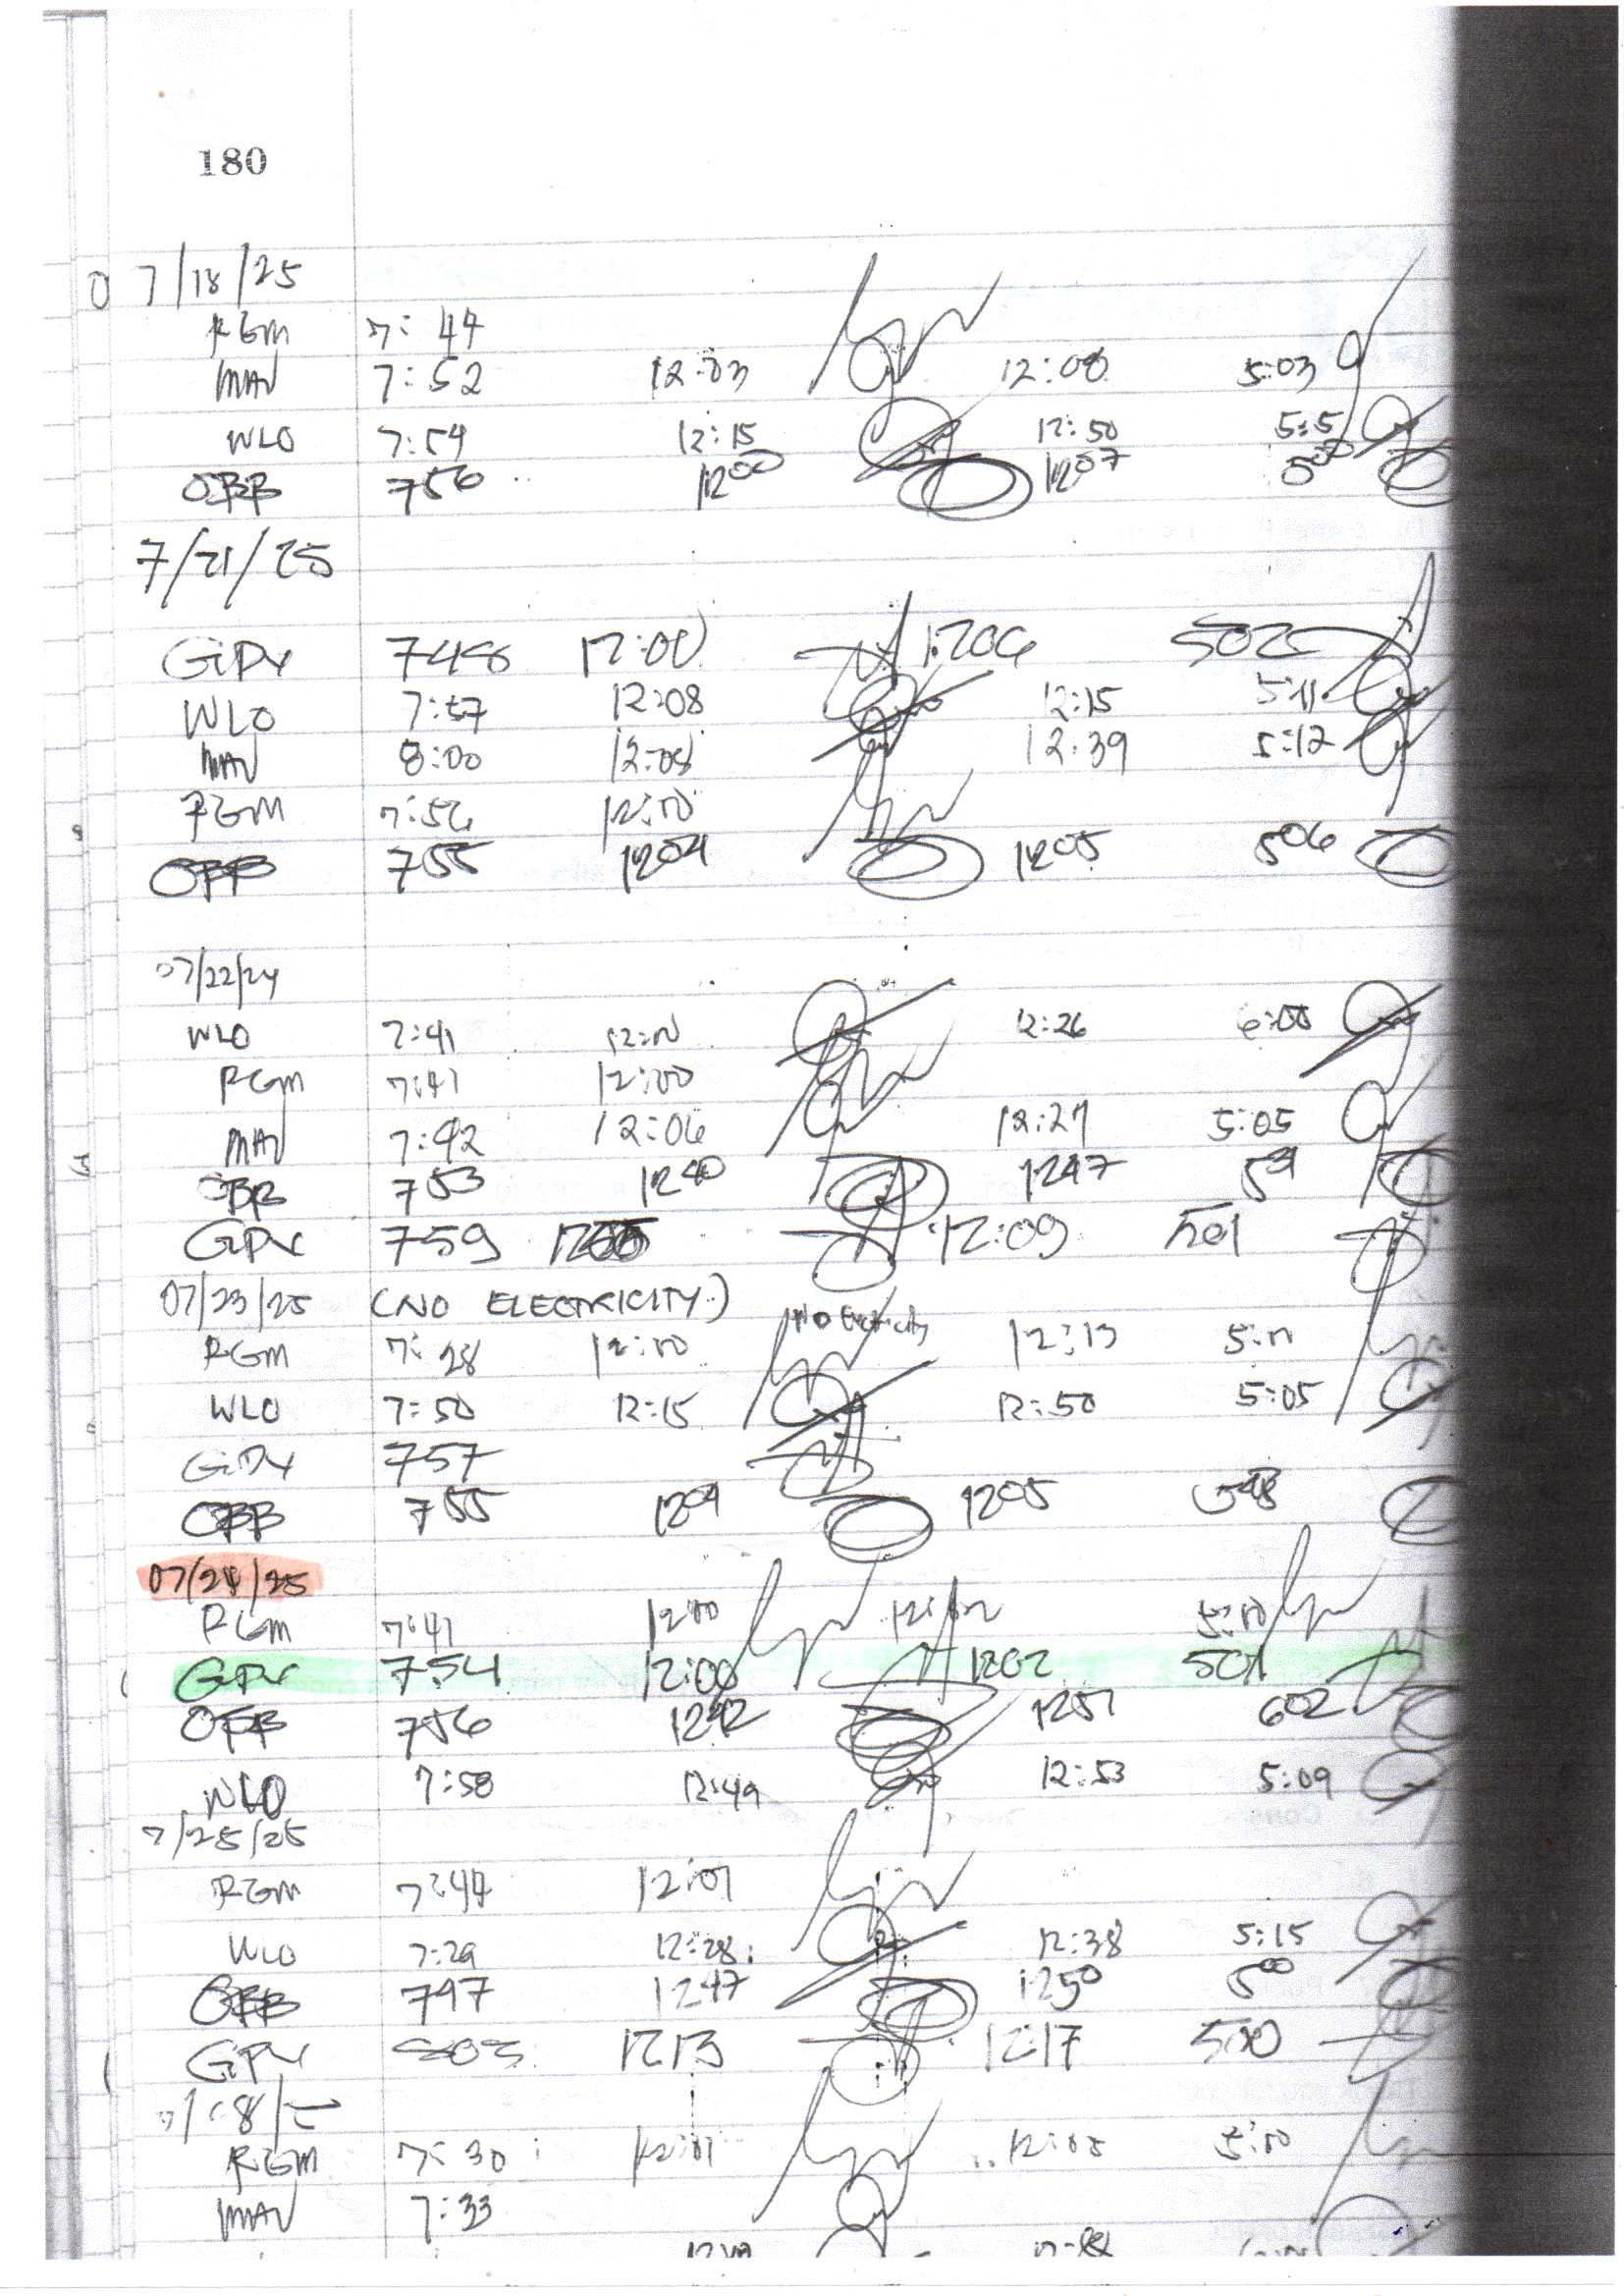 180
7/18/25
RGM 7:44
MAV 7:52 12:03 12:08 5:03
WLO 7:54 12:15 12:50 5:5
OBB 756 1200 1207 500
7/21/25
GiPY 748 12:00 1206 502
WLO 7:57 12:08 12:15 5:11
MAV 8:00 12:08 12:39 5:12
RGM 7:56 12:10
OBB 755 1204 1205 506
07/22/24
WLO 7:41 12:10 12:26 6:00
RGM 7:41 12:00
MAV 7:42 12:06 12:27 5:05
OBB 753 1240 1247 531
GPY 759 12:09 501
07/23/25 (NO ELECTRICITY) No Electricity
RGM 7:28 12:10 12:13 5:11
WLO 7:50 12:15 12:50 5:05
GiPY 757
OBB 755 1204 1205
07/24/25
RGM 7:41 12:10 12:02 5:10
GPY 754 12:00 1202 501
OBB 756 1242 1251 602
WLO 7:58 12:49 12:53 5:09
7/25/25
RGM 7:44 12:01
WLO 7:29 12:28 12:38 5:15
OBB 747 1247 1250 500
GPY 803 1213 12:17 500
RGM 7:30 12:01 12:05 5:10
MAV 7:33